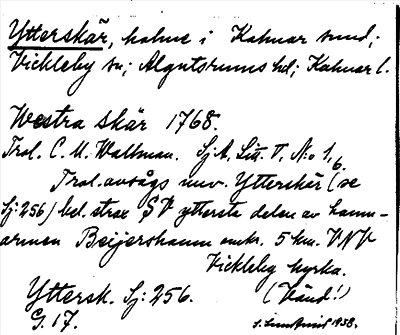 Ytterskär, holme i Kalmar sund;
Vickleby sn; Algutsrums hd; Kalmar l.
Westra skär 1768.
Trol. C. U. Wallman. Sj. A. Litt. V, N:o 1,6.
Trol. avsågs nuv. Ytterskär (se
Sj: 256) bel. strax SV ytterste delen av hamn-
armen Beijershamn omkr. 5 km. VNV
Vickleby kyrka.
Yttersk. Sj: 256. (Vänd!)
G. 17. 1938.